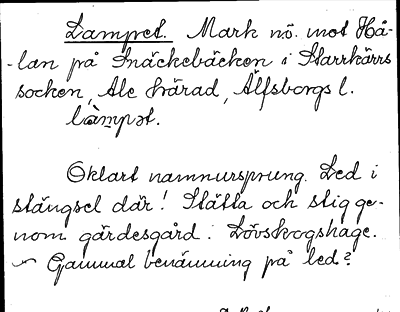 Lampet. Mark n.ö. mot Hå-
-lan på Snäckebäcken i Starrkärrs
socken, Ale härad, Älfsborgs l.
làmpət.
Oklart namnursprung. Led i
stängsel där! Stätta och stig ge-
nom gärdesgård. Lövskogshage.
~ Gammal benämning på led?